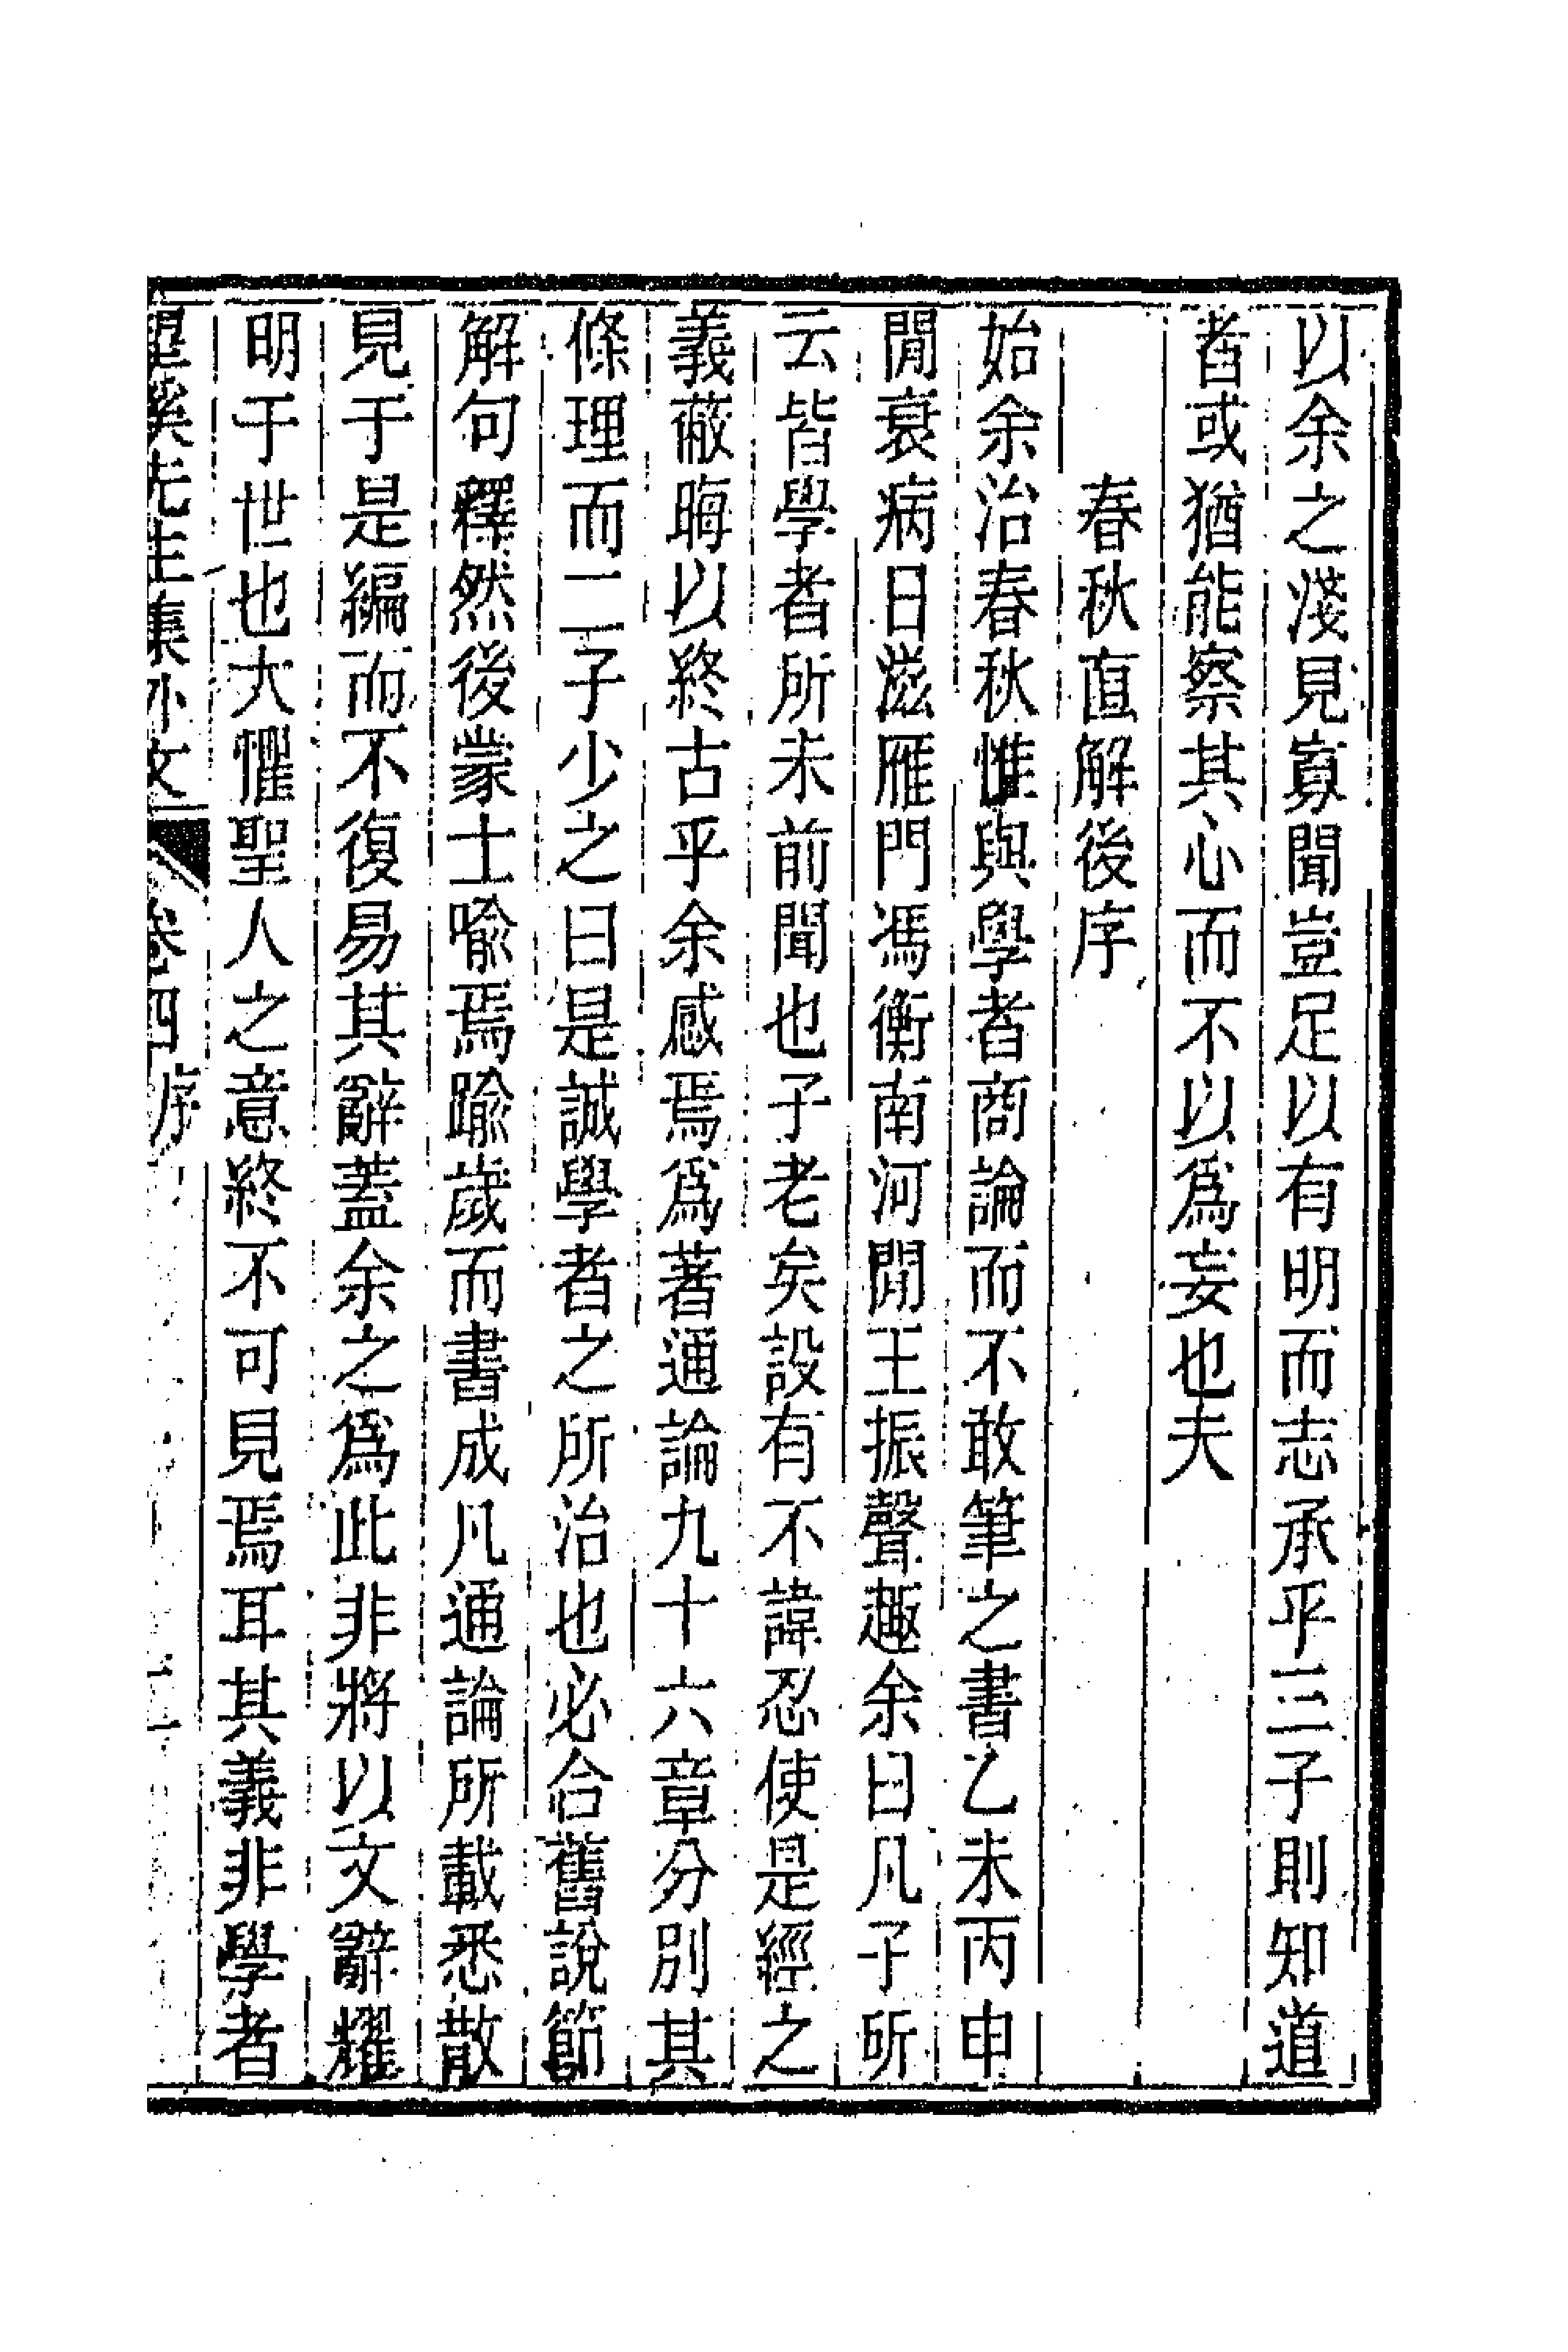 以余之淺見寡聞豈足以有明而志承乎三子則知道
者或猶能察其心而不以爲妄也夫
春秋直解後序
始余治春秋惟與學者商論而不敢筆之書乙未丙申
閒衰病日滋雁門馮衡南河閒王振聲趣余曰凡子所
云皆學者所未前聞也子老矣設有不諱忍使是經之
義蔽晦以終古乎余感焉爲著通論九十六章分別其
條理而二子少之曰是誠學者之所治也必合舊說節
解句釋然後蒙士喩焉踰歲而書成凡通論所載悉散
見于是編而不復易其辭蓋余之爲此非將以文辭耀
明于世也大懼聖人之意終不可見焉耳其義非學者
望溪先生集外文 卷四 序